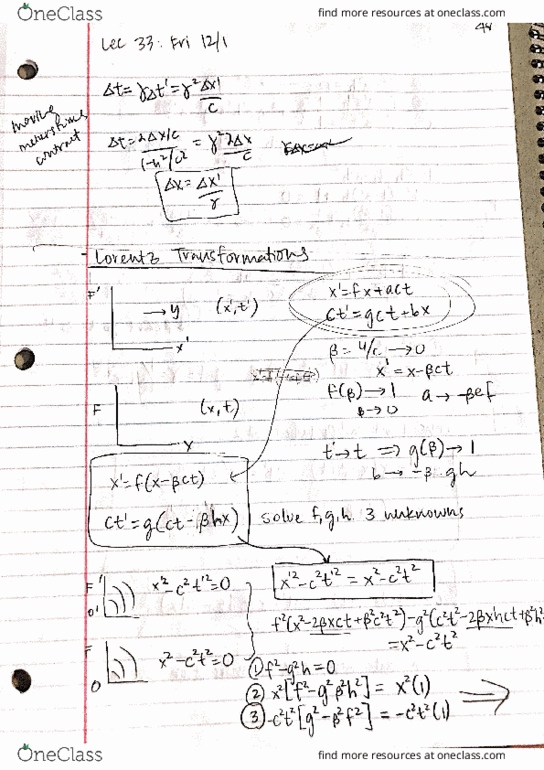 OneClass
find more resources at oneclass.com
44
Lec 33: Fri 12/1
Δt = γΔt' = γ² Δx'/c
moving
metersticks
contract
Δt = 2Δx/c / 1-u²/c² = γ² 2Δx/c
Δx = Δx'/γ
Lorentz Transformations
F'
→ u
(x',t')
x'
x' = fx + act
ct' = gct + bx
β = u/c → 0
x' = x - βct
f(β) → 1
β → 0
a → -βcf
F
(x,t)
x
t' → t ⇒ g(β) → 1
b → -β gh
x' = f(x - βct)
ct' = g(ct - βhx)
solve f,g,h 3 unknowns
F'
O'
x'² - c²t'² = 0
x'² - c²t'² = x² - c²t²
f²(x² - 2βxct + β²c²t²) - g²(c²t² - 2βxhct + β²h²
= x² - c²t²
F
O
x² - c²t² = 0
① f² - g²h = 0
② x²[f² - g²β²h²] = x²(1)
③ -c²t²[g² - β²f²] = -c²t²(1)
OneClass
find more resources at oneclass.com